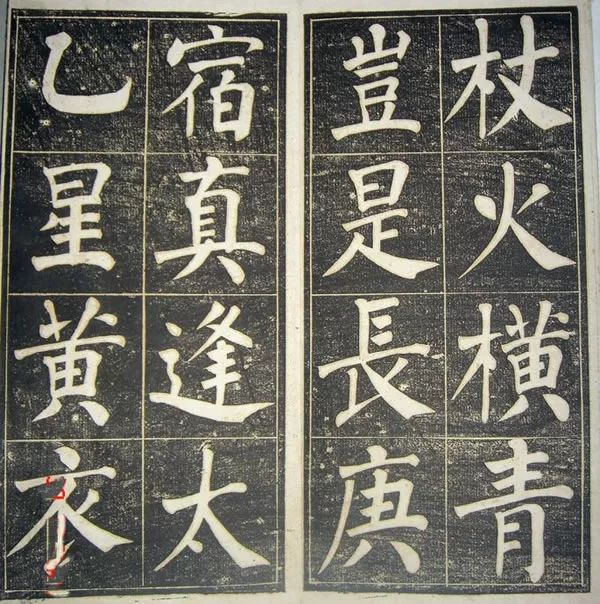 杖火橫青
豈是長庚
宿真逢太
乙星黃衣